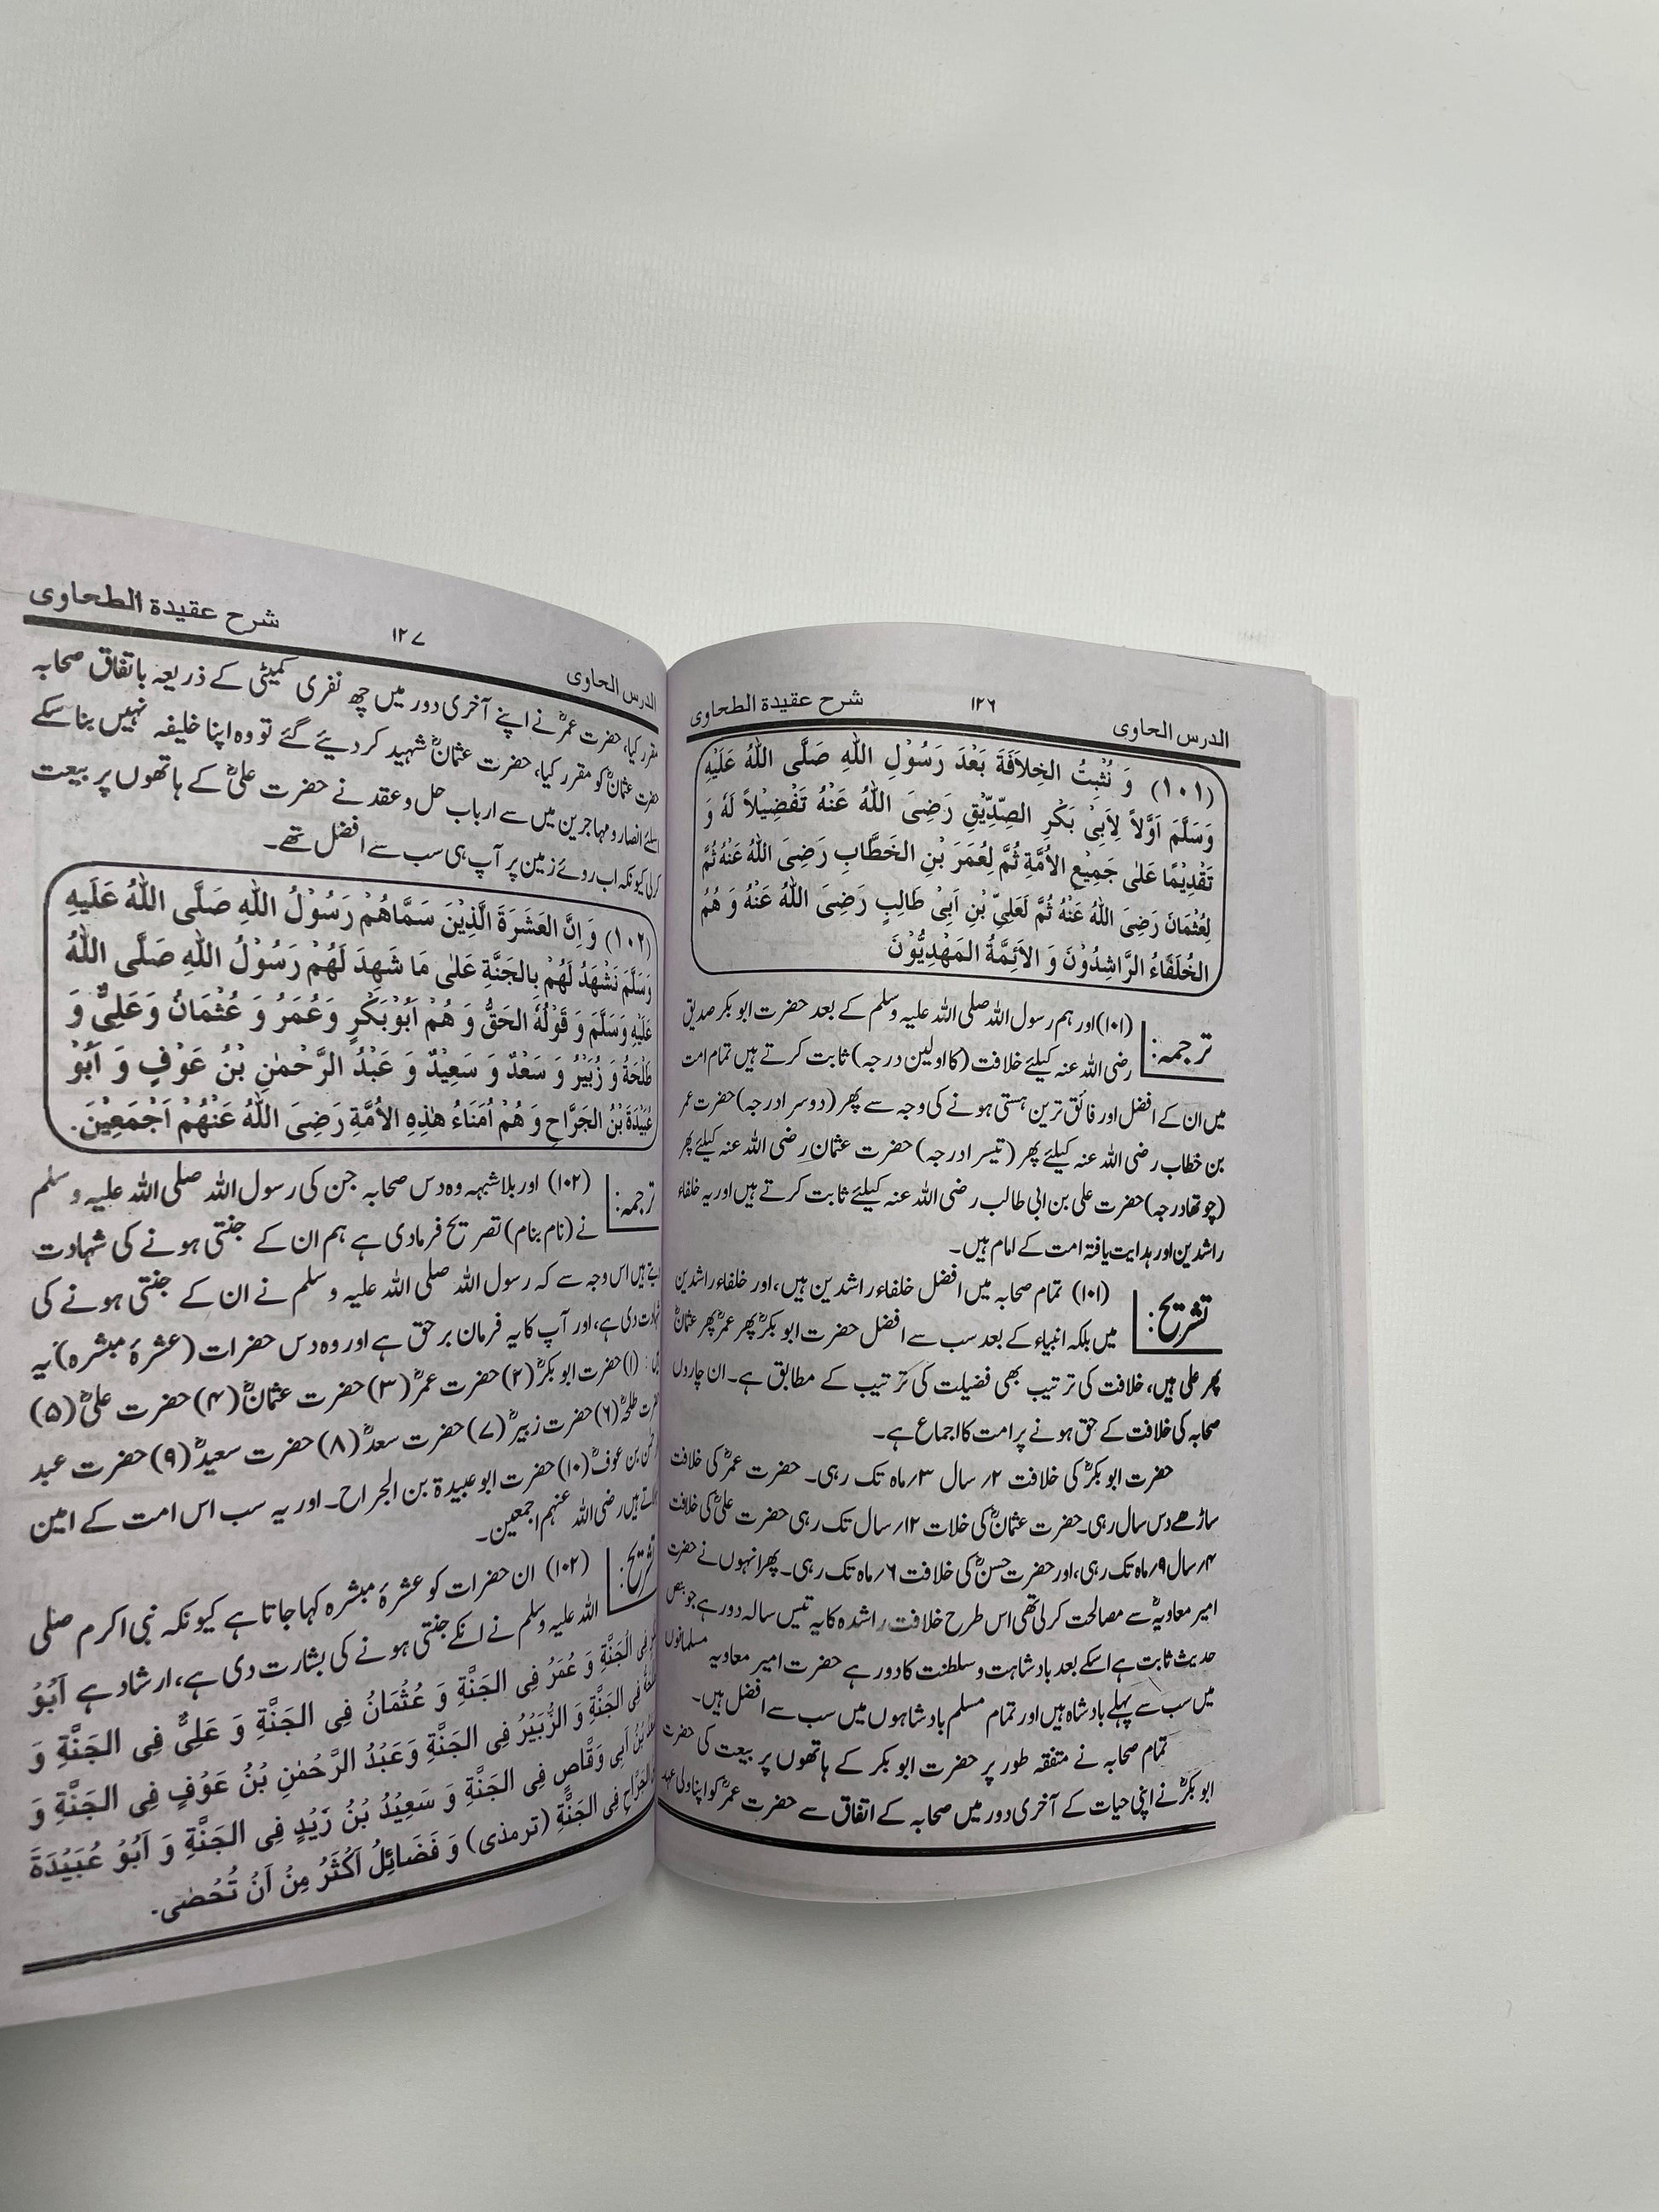 الدرس الحاوی ١٢٦ شرح عقیدة الطحاوی
(١٠١) وَ نُثْبِتُ الخِلاَفَةَ بَعْدَ رَسُوْلِ اللهِ صَلَّى اللهُ عَلَيْهِ
وَسَلَّمَ اَوَّلاً لِاَبِىْ بَكْرِ الصِّدِّيْقِ رَضِىَ اللهُ عَنْهُ تَفْضِيْلاً لَهُ وَ
تَقْدِيْمًا عَلٰى جَمِيْعِ الاُمَّةِ ثُمَّ لِعُمَرَ بْنِ الخَطَّابِ رَضِىَ اللهُ عَنْهُ ثُمَّ
لِعُثْمَانَ رَضِىَ اللهُ عَنْهُ ثُمَّ لَعَلِىِّ بْنِ اَبِىْ طَالِبٍ رَضِىَ اللهُ عَنْهُ وَ هُمُ
الخُلَفَاءُ الرَّاشِدُوْنَ وَ الاَئِمَّةُ المَهْدِيُّوْنَ
ترجمہ: (١٠١) اور ہم رسول اللہ صلی اللہ علیہ وسلم کے بعد حضرت ابو بکر صدیق
رضی اللہ عنہ کیلئے خلافت (کا اولین درجہ) ثابت کرتے ہیں تمام امت
میں ان کے افضل اور فائق ترین ہستی ہونے کی وجہ سے پھر (دوسرا درجہ) حضرت عمر
بن خطاب رضی اللہ عنہ کیلئے پھر (تیسرا درجہ) حضرت عثمان رضی اللہ عنہ کیلئے پھر
(چوتھا درجہ) حضرت علی بن ابی طالب رضی اللہ عنہ کیلئے ثابت کرتے ہیں اور یہ خلفاء
راشدین اور ہدایت یافتہ امت کے امام ہیں۔
تشریح: (١٠١) تمام صحابہ میں افضل خلفاء راشدین ہیں، اور خلفاء راشدین
میں بلکہ انبیاء کے بعد سب سے افضل حضرت ابو بکرؓ پھر عمرؓ پھر عثمانؓ
پھر علی ہیں، خلافت کی ترتیب بھی فضیلت کی ترتیب کے مطابق ہے۔ ان چاروں
صحابہ کی خلافت کے حق ہونے پر امت کا اجماع ہے۔
حضرت ابو بکرؓ کی خلافت ٢؍ سال ٣؍ماہ تک رہی۔ حضرت عمرؓ کی خلافت
ساڑھے دس سال رہی۔ حضرت عثمانؓ کی خلات ١٢؍ سال تک رہی حضرت علیؓ کی خلافت
٤؍ سال ٩؍ماہ تک رہی، اور حضرت حسنؓ کی خلافت ٦؍ ماہ تک رہی۔ پھر انہوں نے حضرت
امیر معاویہؓ سے مصالحت کرلی تھی اس طرح خلافت راشدہ کا یہ تیس سالہ دور ہے جو بنص
حدیث ثابت ہے اسکے بعد بادشاہت و سلطنت کا دور ہے حضرت امیر معاویہ مسلمانوں
میں سب سے پہلے بادشاہ ہیں اور تمام مسلم بادشاہوں میں سب سے افضل ہیں۔
تمام صحابہ نے متفقہ طور پر حضرت ابو بکر کے ہاتھوں پر بیعت کی حضرت
ابو بکرؓ نے اپنی حیات کے آخری دور میں صحابہ کے اتفاق سے حضرت عمرؓ کو اپنا ولی عہد
الدرس الحاوی ١٢٧ شرح عقیدة الطحاوی
مقرر کیا، حضرت عمرؓ نے اپنے آخری دور میں چھ نفری کمیٹی کے ذریعہ باتفاق صحابہ
حضرت عثمانؓ کو مقرر کیا، حضرت عثمانؓ شہید کر دیئے گئے تو وہ اپنا خلیفہ نہیں بنا سکے
اسلئے انصار و مہاجرین میں سے ارباب حل و عقد نے حضرت علیؓ کے ہاتھوں پر بیعت
کرلی کیونکہ اب روئے زمین پر آپ ہی سب سے افضل تھے۔
(١٠٢) وَ اِنَّ العَشَرَةَ الَّذِيْنَ سَمَّاهُمْ رَسُوْلُ اللهِ صَلَّى اللهُ عَلَيهِ
وَسَلَّمَ نَشْهَدُ لَهُمْ بِالجَنَّةِ عَلٰى مَا شَهِدَ لَهُمْ رَسُوْلُ اللهِ صَلَّى اللهُ
عَلَيْهِ وَسَلَّمَ وَ قَوْلُهُ الحَقُّ وَ هُمْ اَبُوْبَكْرٍ وَعُمَرُ وَ عُثْمَانُ وَعَلِىٌّ وَ
طَلْحَةُ وَ زُبَيْرُ وَ سَعْدٌ وَ سَعِيْدٌ وَ عَبْدُ الرَّحْمٰنِ بْنُ عَوْفٍ وَ اَبُوْ
عُبَيْدَةَ بْنُ الجَرَّاحِ وَ هُمْ اُمَنَاءُ هٰذِهِ الاُمَّةِ رَضِىَ اللهُ عَنْهُمْ اَجْمَعِيْنَ.
ترجمہ: (١٠٢) اور بلا شبہہ وہ دس صحابہ جن کی رسول اللہ صلی اللہ علیہ وسلم
نے (نام بنام) تصریح فرما دی ہے ہم ان کے جنتی ہونے کی شہادت
دیتے ہیں اس وجہ سے کہ رسول اللہ صلی اللہ علیہ وسلم نے ان کے جنتی ہونے کی
شہادت دی ہے، اور آپ کا یہ فرمان برحق ہے اور وہ دس حضرات (عشرۂ مبشرہ) یہ
ہیں: (١) حضرت ابو بکرؓ (٢) حضرت عمرؓ (٣) حضرت عثمانؓ (٤) حضرت علیؓ (٥)
حضرت طلحہؓ (٦) حضرت زبیرؓ (٧) حضرت سعدؓ (٨) حضرت سعیدؓ (٩) حضرت عبد
الرحمٰن بن عوفؓ (١٠) حضرت ابو عبیدة بن الجراح۔ اور یہ سب اس امت کے امین
ہیں رضی اللہ عنہم اجمعین۔
تشریح: (١٠٢) ان حضرات کو عشرۂ مبشرہ کہا جاتا ہے کیونکہ نبی اکرم صلی
اللہ علیہ وسلم نے انکے جنتی ہونے کی بشارت دی ہے، ارشاد ہے اَبُوْ
فِى الْجَنَّةِ وَ عُمَرُ فِى الجَنَّةِ وَ عُثْمَانُ فِى الجَنَّةِ وَ عَلِىٌّ فِى الجَنَّةِ وَ
فِى الجَنَّةِ وَ الزُّبَيْرُ فِى الجَنَّةِ وَعَبْدُ الرَّحْمٰنِ بْنُ عَوْفٍ فِى الجَنَّةِ وَ
بْنُ اَبِى وَقَّاصٍ فِى الجَنَّةِ وَ سَعِيْدُ بْنُ زَيْدٍ فِى الجَنَّةِ وَ اَبُوْ عُبَيْدَةَ
الجَرَّاحِ فِى الجَنَّةِ (ترمذی) وَ فَضَائِلُ اَكْثَرُ مِنْ اَنْ تُحْصٰى۔